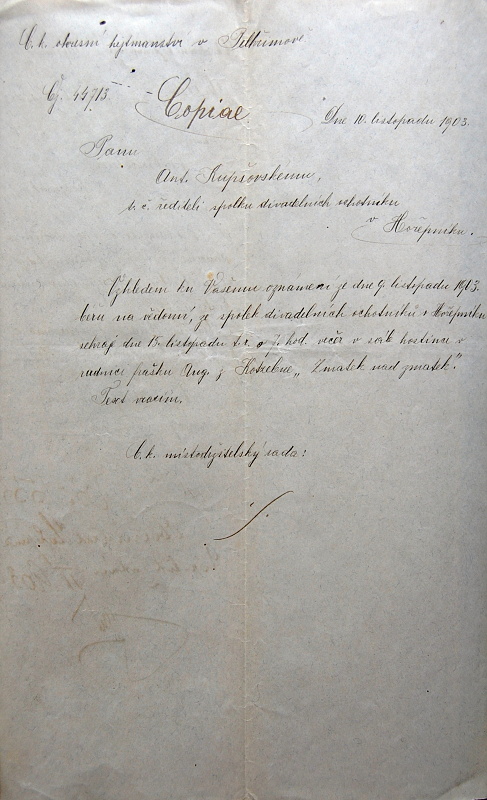 C. k. okresní hejtmanství v Pelhřimově
Čj. 44713.
Copiae
Dne 10. listopadu 1903.
Panu
Ant. Kupšovskému,
t. č. řediteli spolku divadelních ochotníků
v Hořepníku.
Vzhledem ku Vašemu oznámení ze dne 9. listopadu 1903.
beru na vědomí, že spolek divadelních ochotníků v Hořepníku
sehraje dne 15. listopadu t. r. o 7. hod. večer v sále hostince v
radnici frašku Aug. z Kotzebue „Zmatek nad zmatek“.
Text vracím.
C. k. místodržitelský rada: